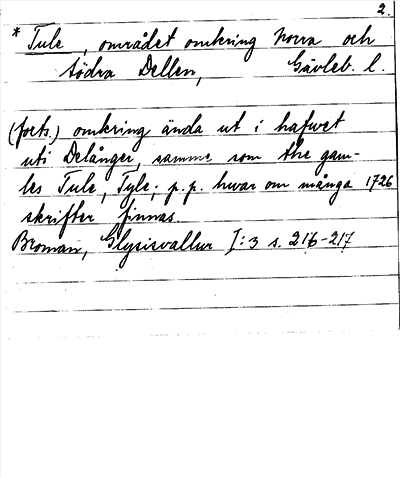 2.
* Tule, området omkring Norra och
södra Dellen, Gävleb. l.
(forts.) omkring ända ut i hafwet
uti Delånger, samme som the gam-
les Tule, Tyle, p.p. hwar om många 1726
skrifter finnas.
Broman, Glysisvallur I:3 s. 216-217